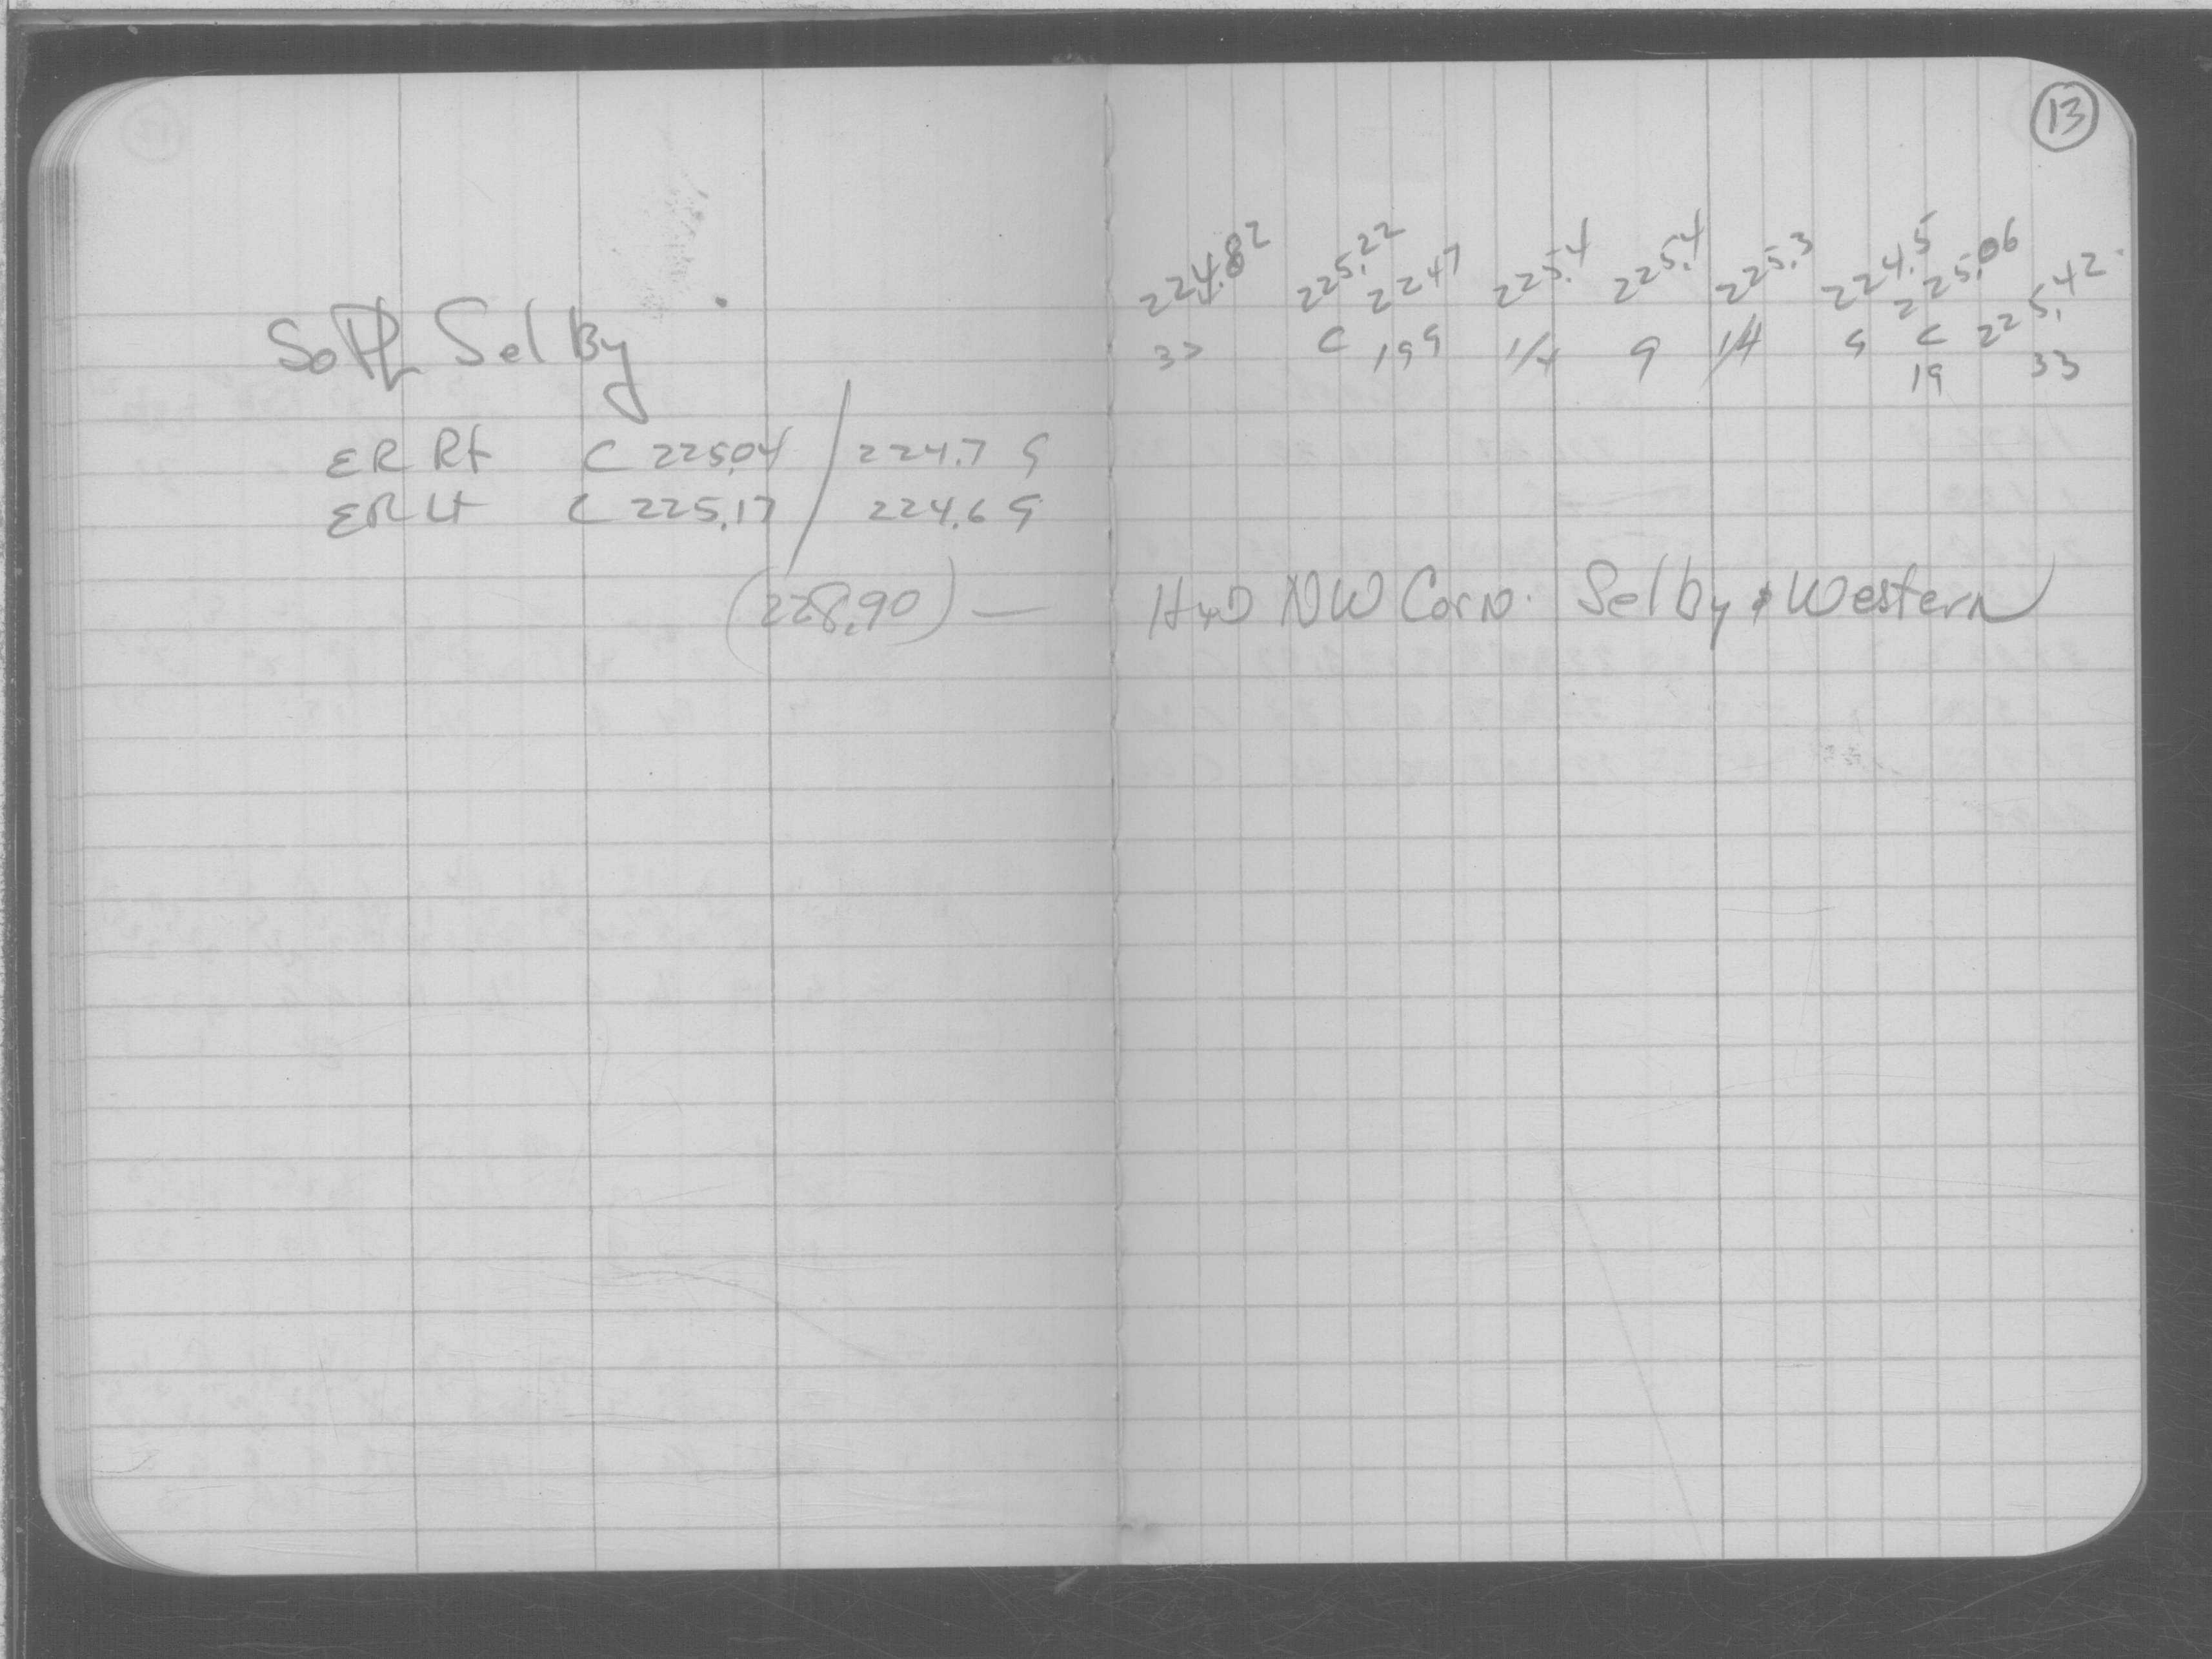 13
224.82 225.22 224.7 225.4 225.4 225.3 224.5 225.06 225.42
33 C 19 G 1/4 G 1/4 G C 19 33
So PL Selby
ER Rt C 225.04 / 224.7 G
ER Lt C 225.17 / 224.6 G
(228.90) — HyD NW Corn. Selby & Western